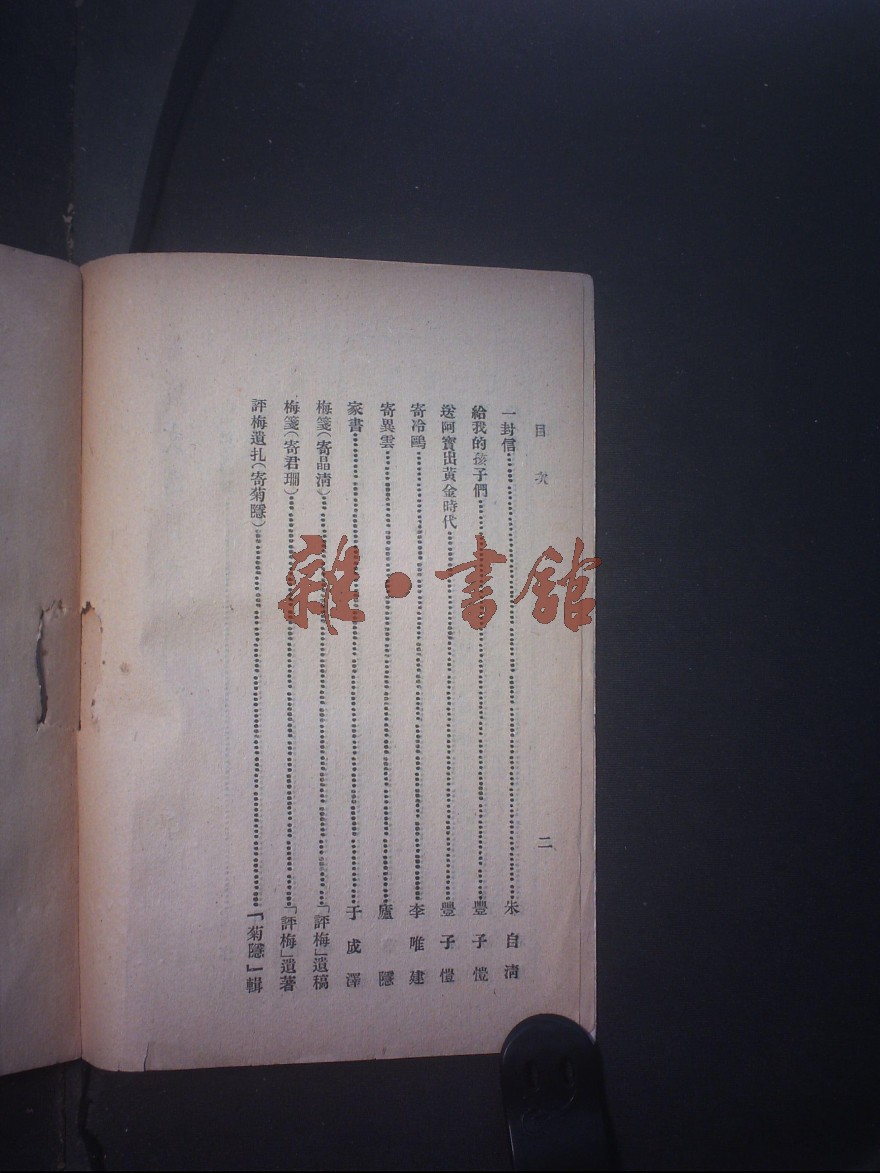 目次 二
一封信 朱自清
給我的孩子們 豐子愷
送阿寶出黃金時代 豐子愷
寄冷鷗 李唯建
寄異雲 廬隱
家書 于成澤
梅箋(寄晶清) 「評梅」遺稿
梅箋(寄君珊) 「評梅」遺著
評梅遺扎(寄菊隱) 「菊隱」輯
雜·書館